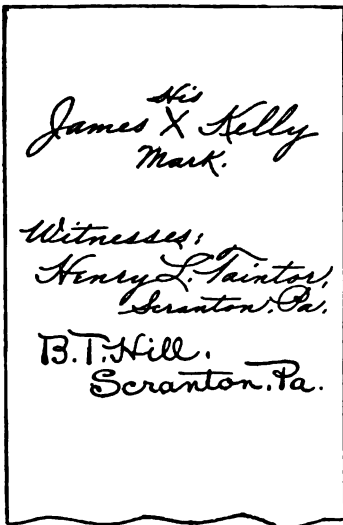 His
James X Kelly
Mark.
Witnesses:
Henry L. Taintor,
Scranton, Pa.
B. T. Hill.
Scranton, Pa.